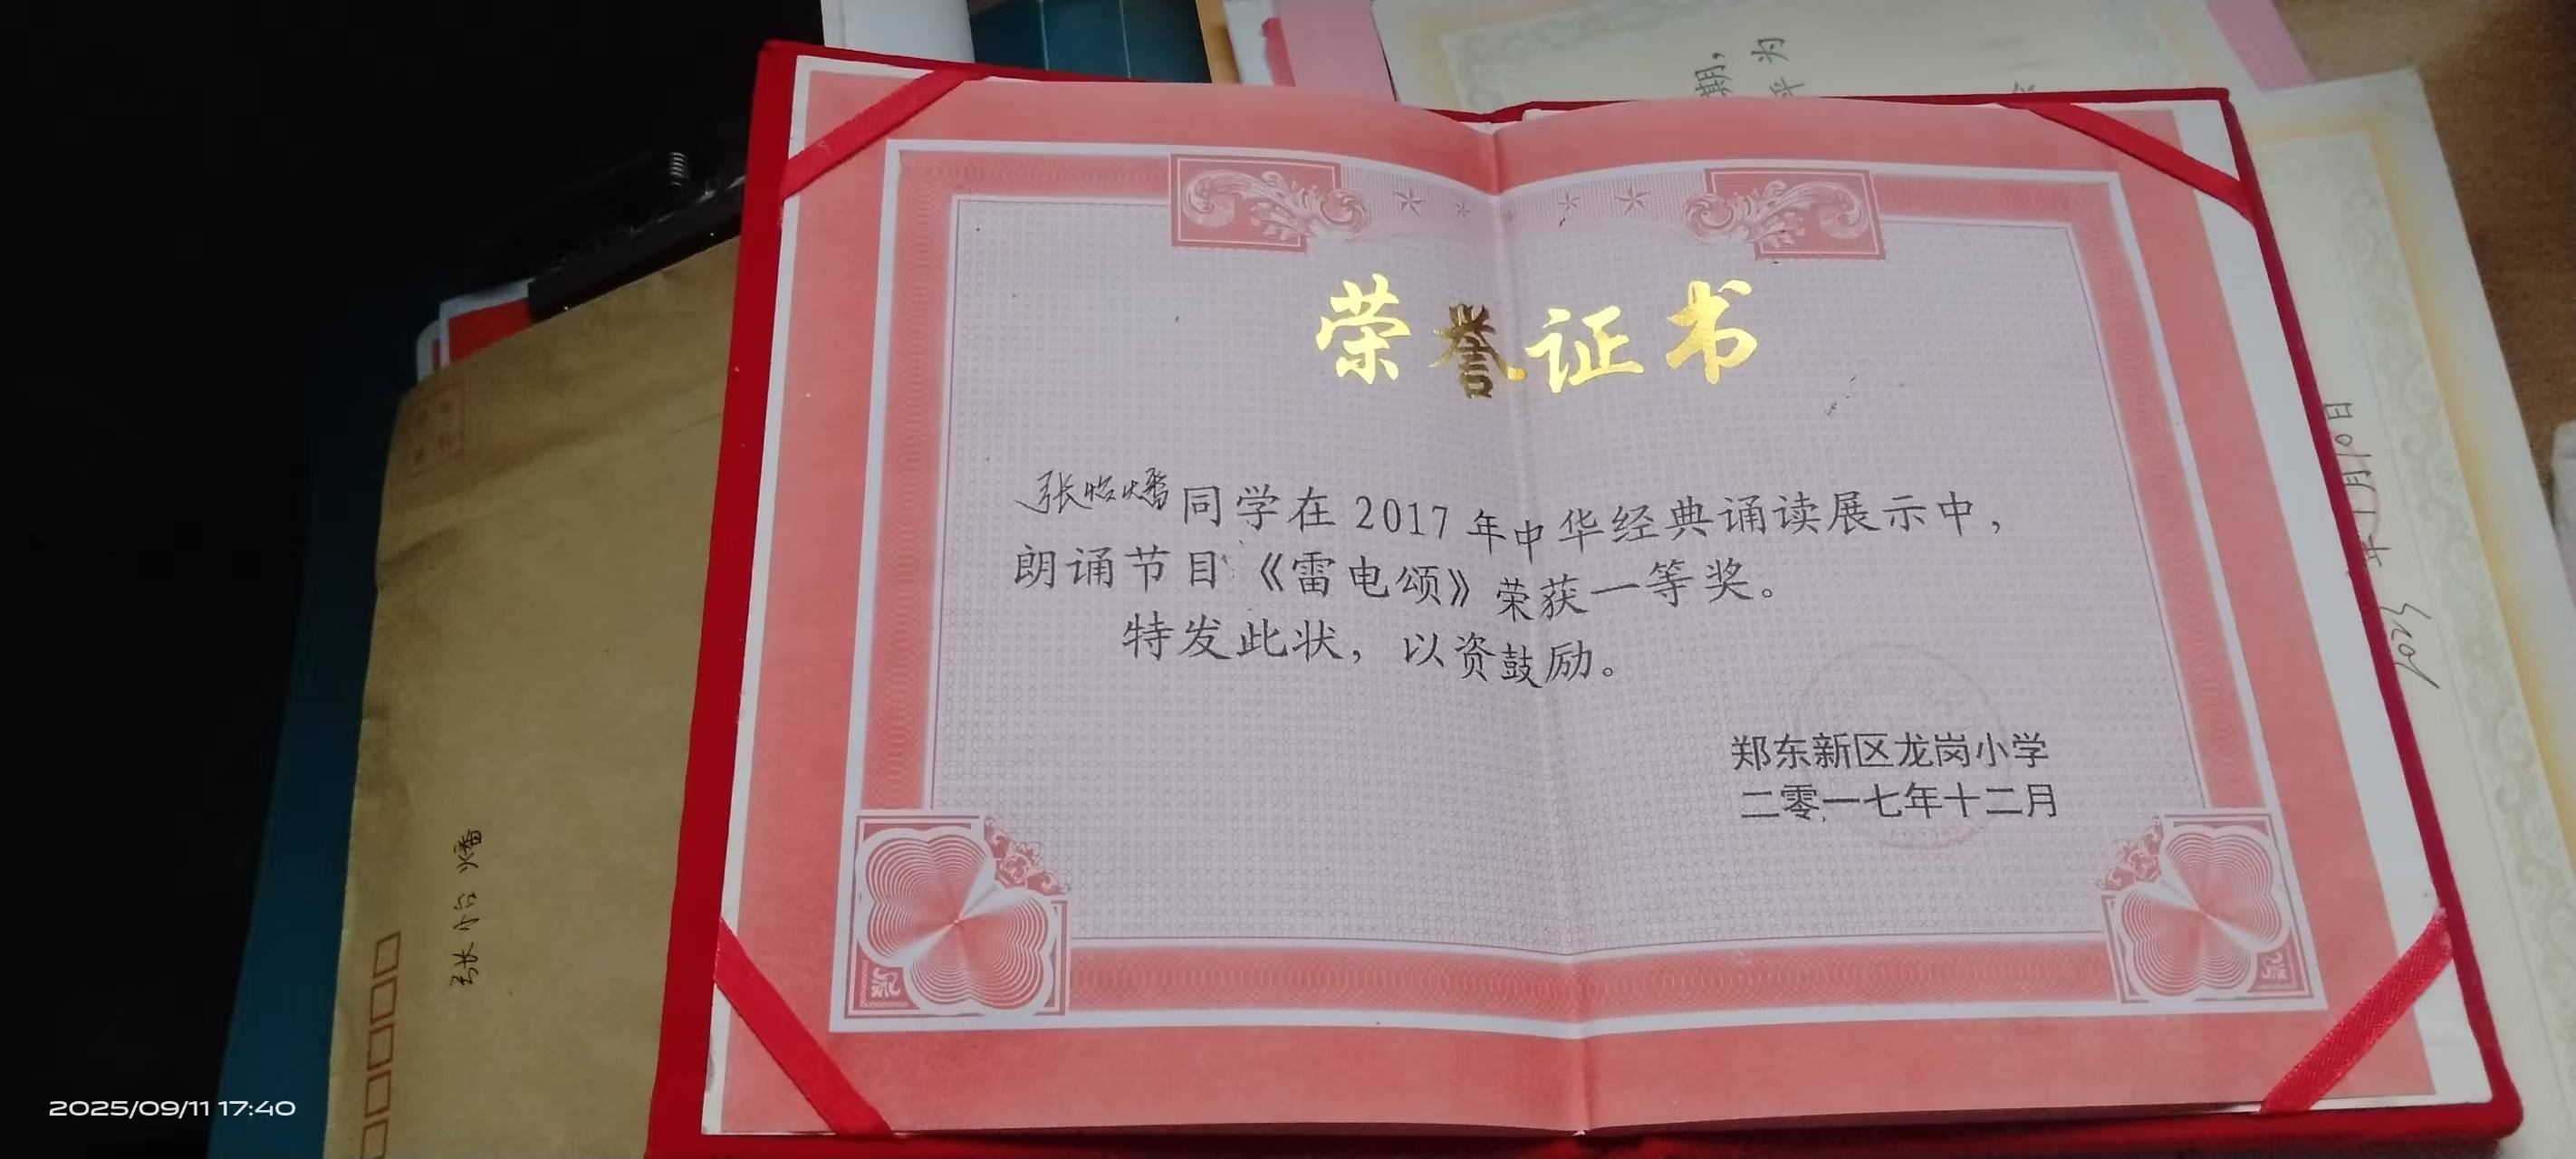 荣誉证书
张怡燔同学在2017年中华经典诵读展示中，
朗诵节目《雷电颂》荣获一等奖。
特发此状，以资鼓励。
郑东新区龙岗小学
二零一七年十二月
张怡燔
期，
平为
年1月10日
2025/09/11 17:40